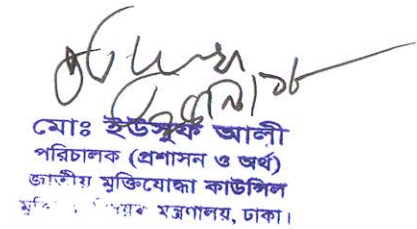 মোঃ ইউসুফ আলী
পরিচালক (প্রশাসন ও অর্থ)
জাতীয় মুক্তিযোদ্ধা কাউন্সিল
মন্ত্রণালয়, ঢাকা।